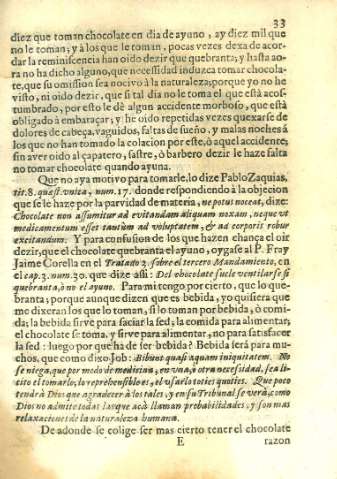 33
diez que toman chocolate en dia de ayuno , ay diez mil que
no le toman; y à los que le toman, pocas vezes dexa de acor-
dar la reminiscencia han oido dezir que quebranta; y hasta ao-
ra no ha dicho alguno, que necessidad induzca tomar chocola-
te, que su omission sea nocivo à la naturaleza; porque yo no he
visto, ni oido dezir, que si tal dia no le toma el que està acos-
tumbrado, por esto le dè algun accidente morboso, que està
obligado à embaraçar; y he oido repetidas vezes quexarse de
dolores de cabeça, vaguidos, faltas de sueño, y malas noches á
los que no han tomado la colacion por este, ò aquel accidente;
sin aver oido al çapatero, sastre, ò barbero dezir le haze falta
no tomar chocolate quando ayuna.
Que no aya motivo para tomarle, lo dize Pablo Zaquias,
tit. 8. quæst. vnica, num. 17. donde respondiendo à la objecion
que se le haze por la parvidad de materia, ne potus noceat, dize:
Chocolate non assumitur ad evitandam aliquam noxam, neque vt
medicamentum esset tantium ad voluptatem, & ad corporis robur
excitandum. Y para confusion de los que hazen chança el oir
dezir, que el chocolate quebranta el ayuno, oygase al P. Fray
Jaime Corella en el Tratado 3. sobre el tercero Mandamiento, en
el cap. 3. num. 30. que dize assi: Del chocolate suele ventilarse si
quebranta, ò no el ayuno. Para mi tengo por cierto, que lo que-
branta; porque aunque dizen que es bebida, yo quisiera que
me dixeran los que lo toman, si lo toman por bebida, ò comi-
da; la bebida sirve para saciar la sed; la comida para alimentar;
el chocolate se toma, y sirve para alimentar, no para satisfacer
la sed: luego por què ha de ser bebida? Bebida será para mu-
chos, que como dixo Job: Bibunt quasi aquam iniquitatem. No
se niega, que por modo de medicina, en vna, ò otra necessidad, sea li-
cito el tomarlo, lo reprehensible es, el vsarlo toties quoties. Que poco
tendrà Dios que agradecer à los tales, y en su Tribunal se verà, como
Dios no admite todas las que acà llaman probabilidades, y son mas
relaxaciones de la naturaleza humana.
De adonde se colige ser mas cierto tener el chocolate
E
razon